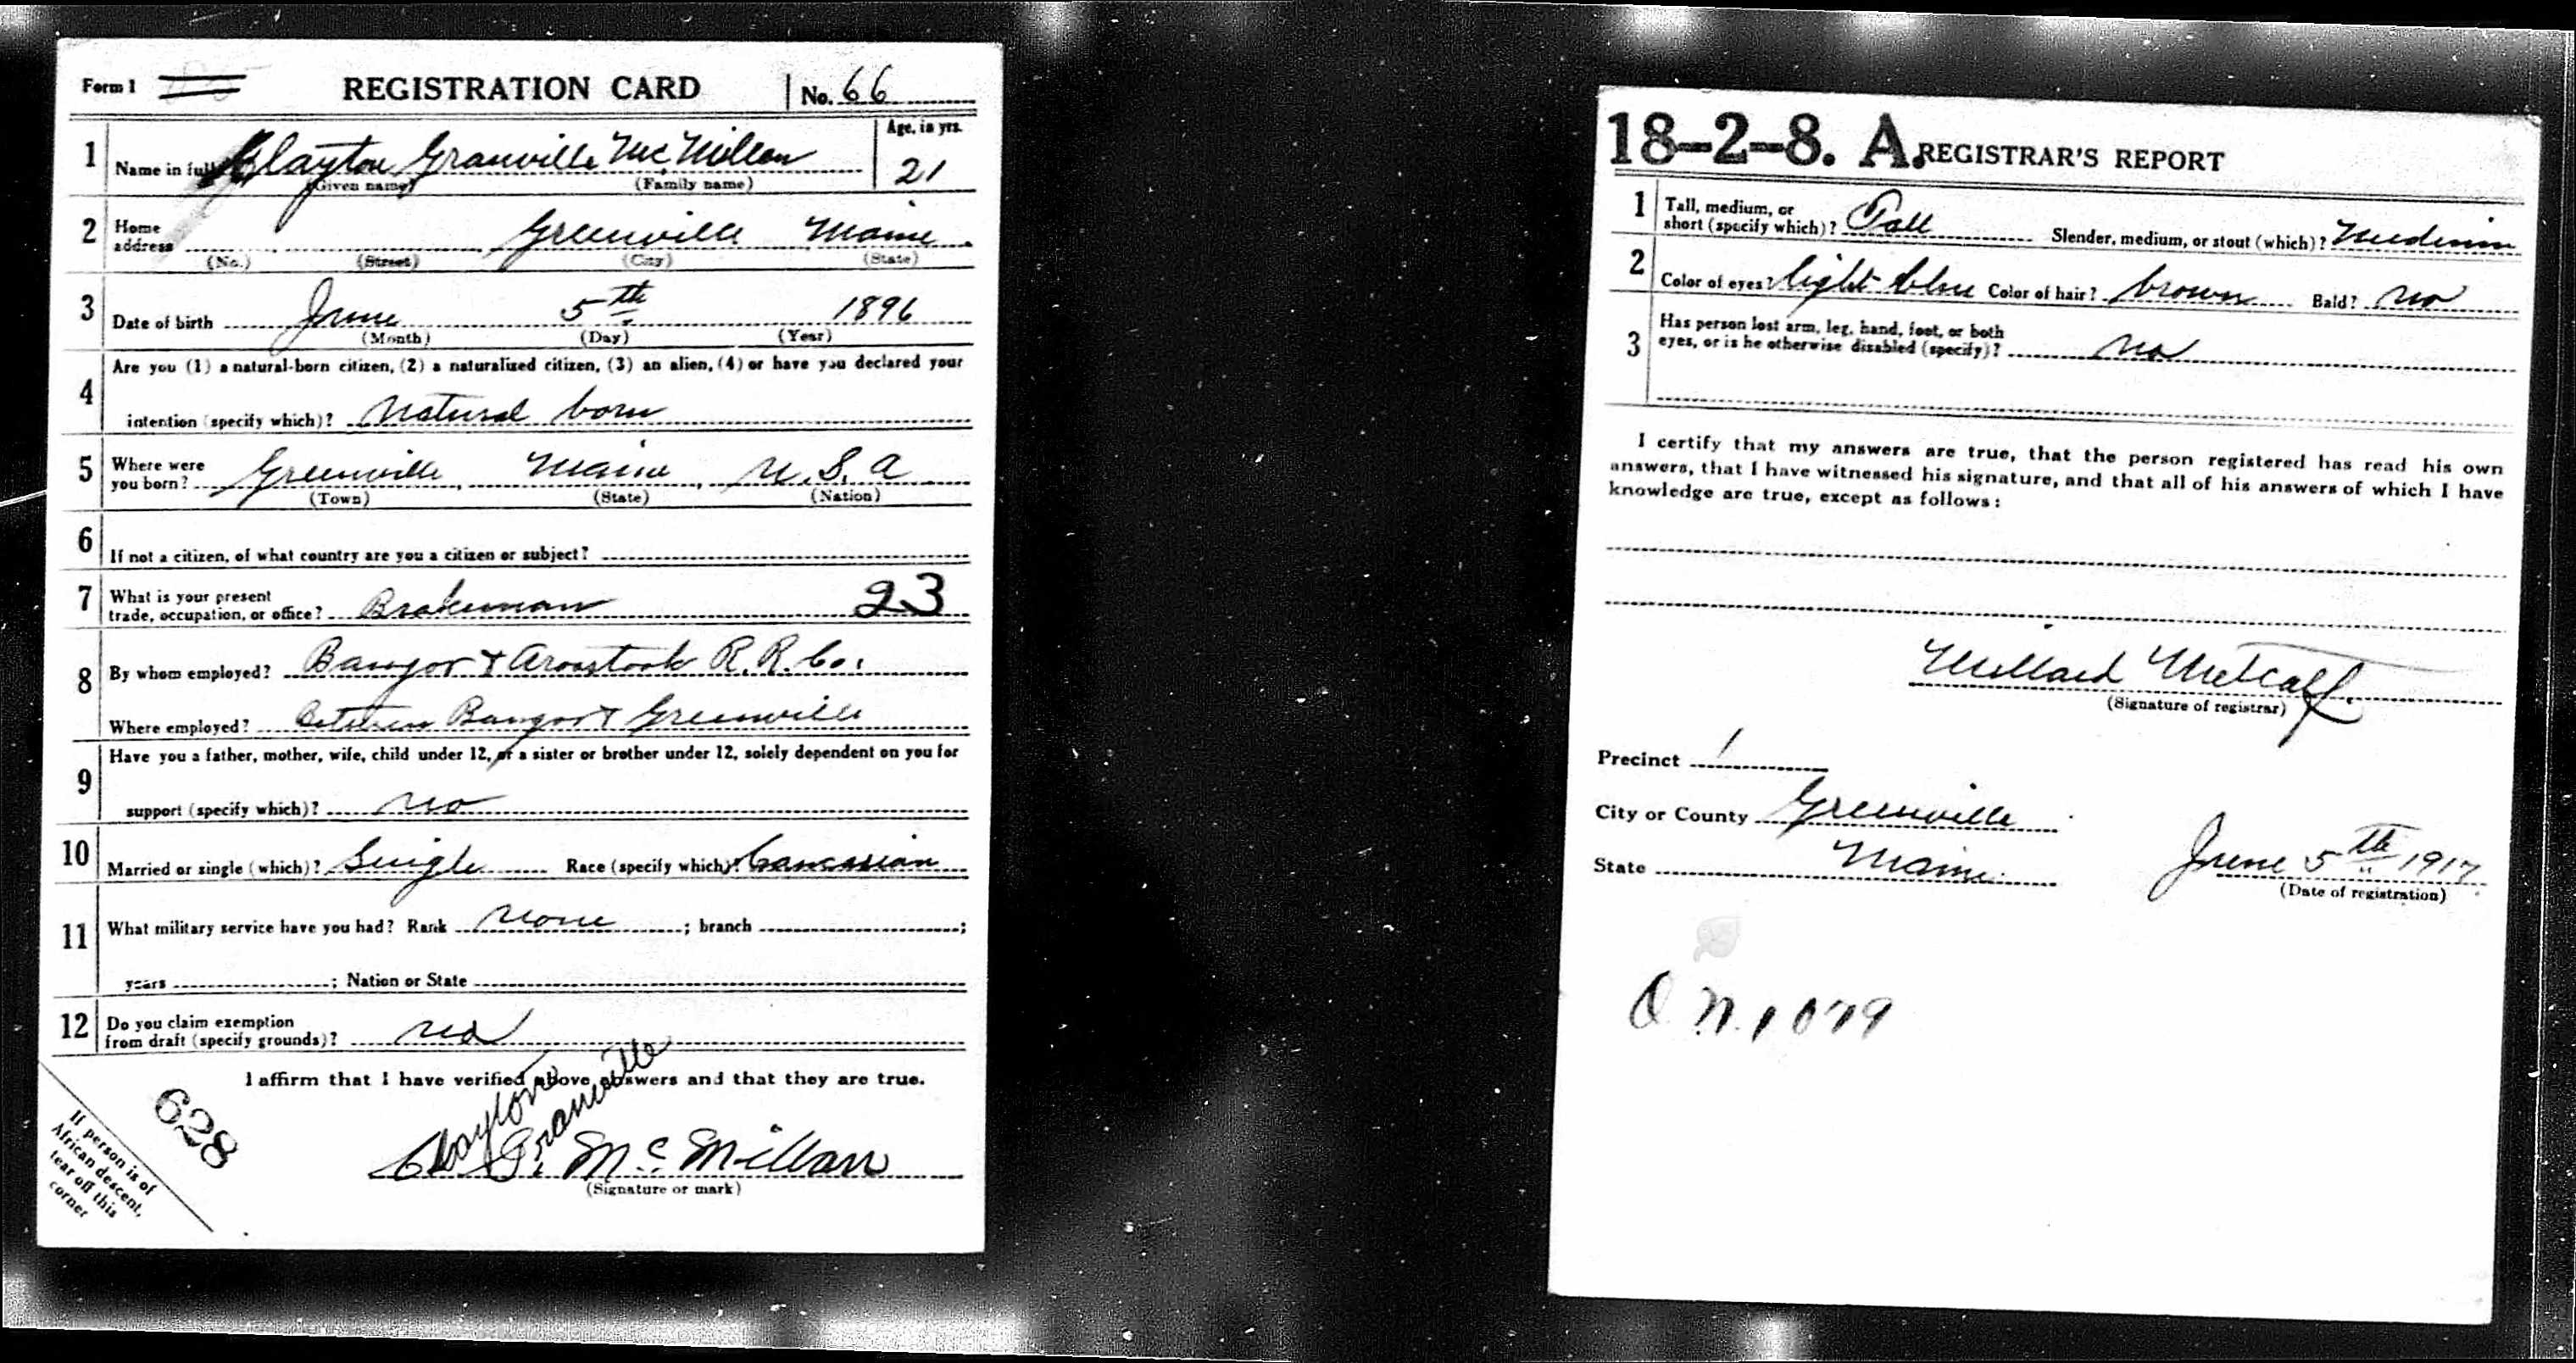 Form 1 REGISTRATION CARD No. 66
1 Name in full Clayton Granville McMillan Age, in yrs. 21
(Given name) (Family name)
2 Home address Greenville Maine
(No.) (Street) (City) (State)
3 Date of birth June 5th 1896
(Month) (Day) (Year)
4 Are you (1) a natural-born citizen, (2) a naturalized citizen, (3) an alien, (4) or have you declared your
intention (specify which)? Natural born
5 Where were you born? Greenville, Maine, U.S.A
(Town) (State) (Nation)
6 If not a citizen, of what country are you a citizen or subject?
7 What is your present trade, occupation, or office? Brakeman 23
8 By whom employed? Bangor & Aroostook R.R. Co.
Where employed? between Bangor & Greenville
9 Have you a father, mother, wife, child under 12, or a sister or brother under 12, solely dependent on you for
support (specify which)? no
10 Married or single (which)? Single Race (specify which)? Caucasian
11 What military service have you had? Rank none ; branch ;
years ; Nation or State
12 Do you claim exemption from draft (specify grounds)? no
I affirm that I have verified above answers and that they are true.
Clayton Granville
G. McMillan
(Signature or mark)
628
If person is of
African descent,
tear off this
corner
18-2-8. A. REGISTRAR'S REPORT
1 Tall, medium, or short (specify which)? Tall Slender, medium, or stout (which)? Medium
2 Color of eyes? light blue Color of hair? brown Bald? no
3 Has person lost arm, leg, hand, foot, or both
eyes, or is he otherwise disabled (specify)? no
I certify that my answers are true, that the person registered has read his own
answers, that I have witnessed his signature, and that all of his answers of which I have
knowledge are true, except as follows:
Millard Metcalf.
(Signature of registrar)
Precinct 1
City or County Greenville
State Maine. June 5th 1917.
(Date of registration)
O.N. 1079